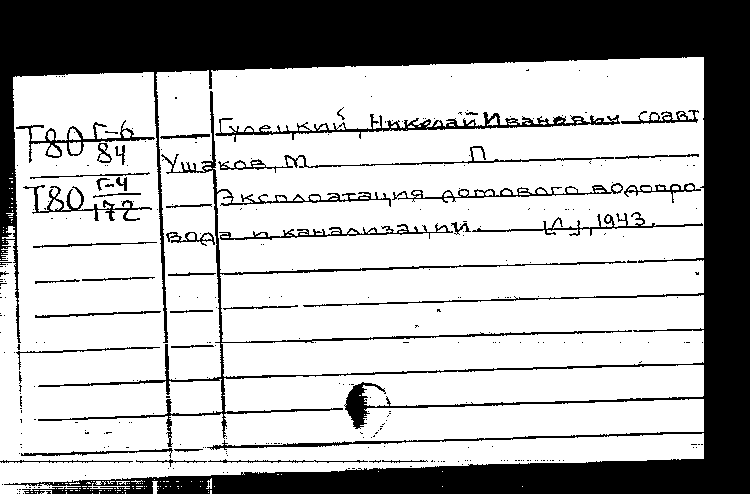 Т80 Г-6/84
Гулецкий, Николай Иванович соавт.
Ушаков, М. П.
Т80 Г-4/172
Эксплоатация домового водопро-
вода и канализации. М., 1943.